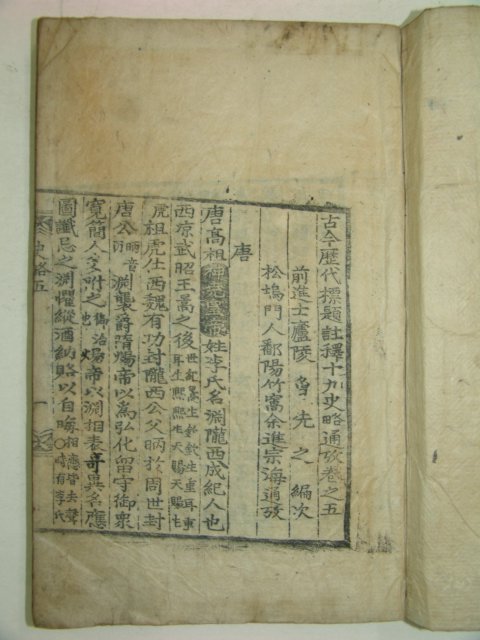 古今歷代標題註釋十九史略通攷卷之五
前進士廬陵曾先之編次
松塢門人鄱陽竹窩余進宗海通攷
唐
唐高祖神堯皇帝姓李氏名淵隴西成紀人也
西凉武昭王暠之後
虎祖虎仕西魏有功封隴西公父昞於周世封
唐公昞音丙淵襲爵隋煬帝以為弘化留守御衆
寬簡人多附之煬帝以淵相表奇異名應
圖讖忌之淵懼縱酒納賂以自晦
史略五
一